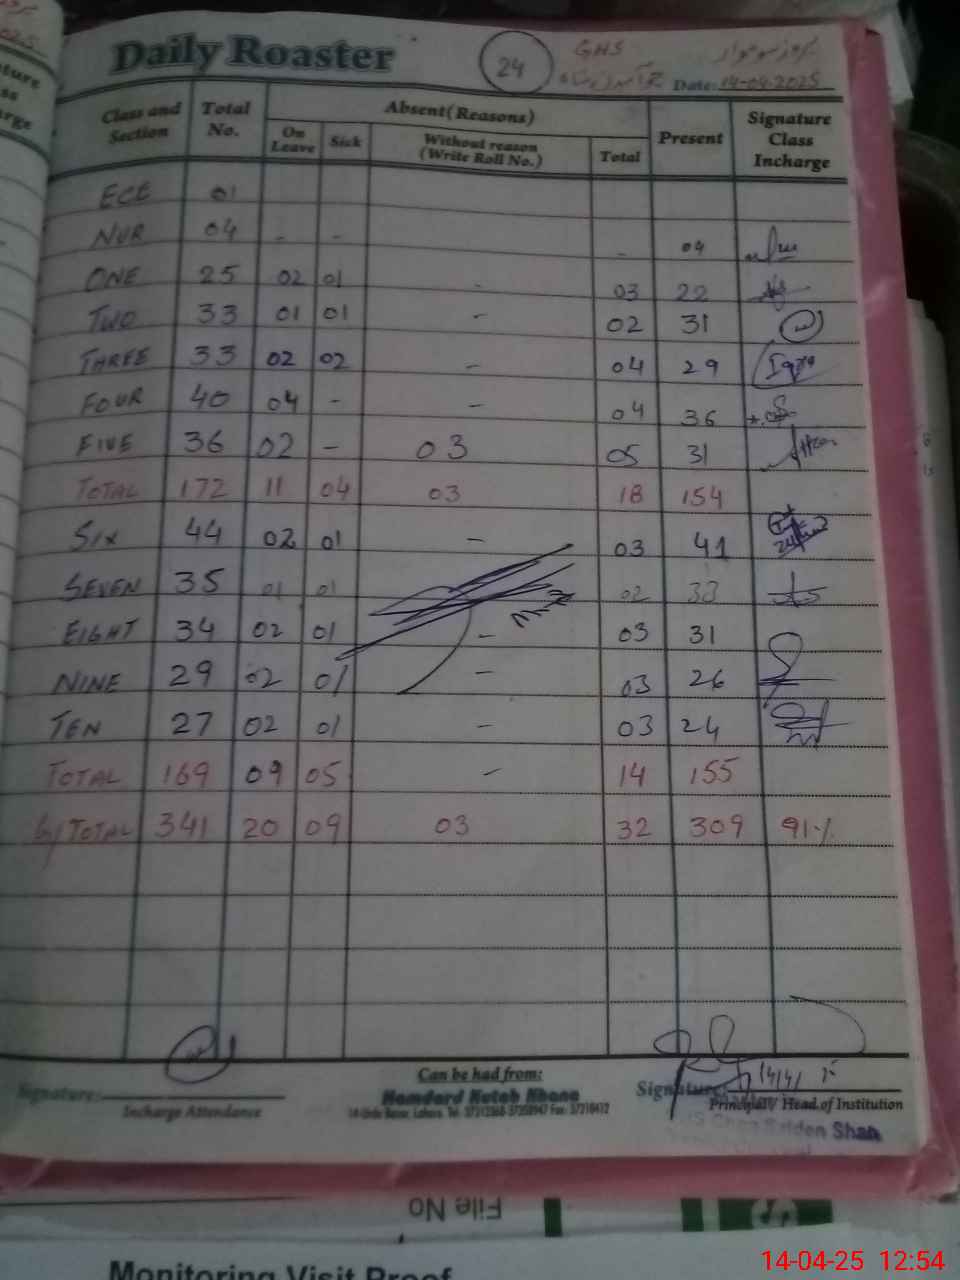 Daily Roaster
24
GHS
بروز سوموار
Date: 14-04-2025
Class and Section Total No. Absent(Reasons) Present Signature Class Incharge
On Leave Sick Without reason (Write Roll No.) Total
ECE 01
NUR 04 - - - 04
ONE 25 02 01 - 03 22
TWO 33 01 01 - 02 31
THREE 33 02 02 - 04 29 Iqra
FOUR 40 04 - - 04 36
FIVE 36 02 - 03 05 31
TOTAL 172 11 04 03 18 154
SIX 44 02 01 - 03 41
SEVEN 35 01 01 02 33
EIGHT 34 02 01 - 03 31
NINE 29 02 01 - 03 26
TEN 27 02 01 - 03 24
TOTAL 169 09 05 - 14 155
G/TOTAL 341 20 09 03 32 309 91%
Signature: Can be had from: Signature:
Incharge Attendance Hamdard Kutab Khana Principal / Head of Institution
14-Urdu Bazar, Lahore. Tel:
Shah
File No
Monitoring Visit Proof
14-04-25 12:54